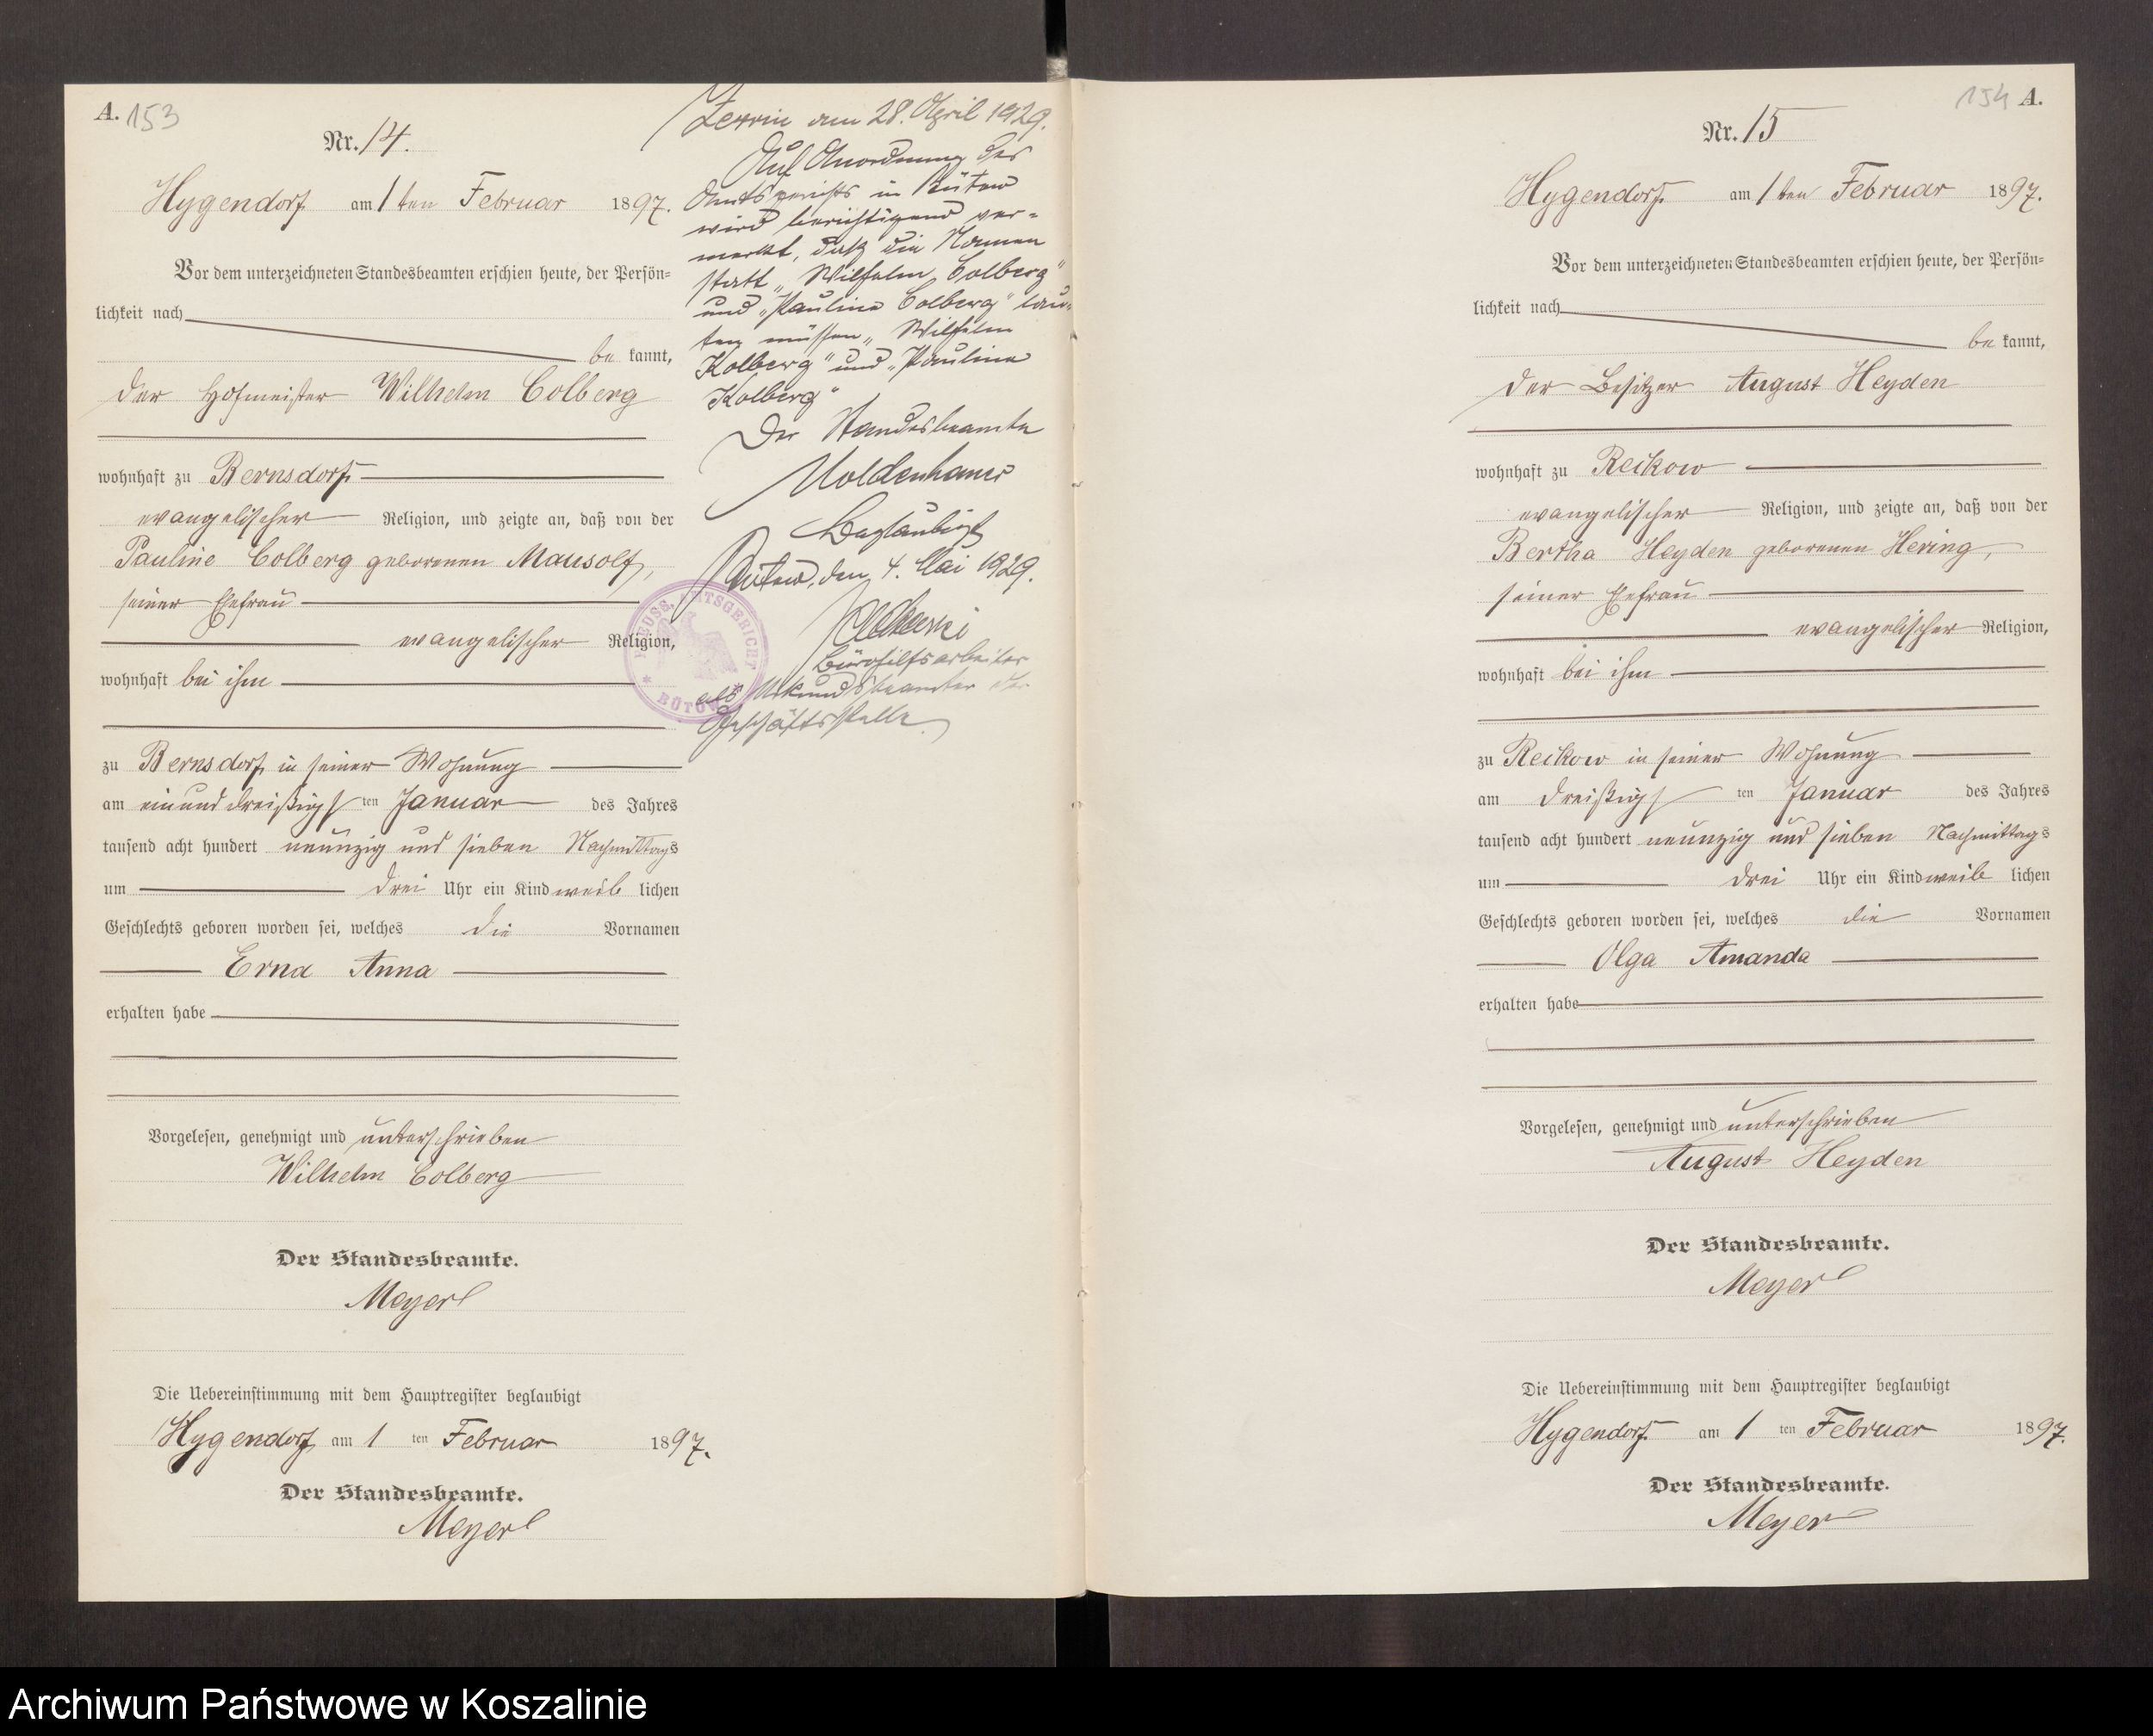 A. 153
Nr. 14.
Hygendorf am 1 ten Februar 1897.
Vor dem unterzeichneten Standesbeamten erschien heute, der Persön=
lichkeit nach
be kannt,
der Hofmeister Wilhelm Colberg
wohnhaft zu Bernsdorf
evangelischer Religion, und zeigte an, daß von der
Pauline Colberg geborenen Mausolf,
seiner Ehefrau
evangelischer Religion,
wohnhaft bei ihm
zu Bernsdorf in seiner Wohnung
am ein und dreißigs ten Januar des Jahres
tausend acht hundert neunzig und sieben Nachmittags
um drei Uhr ein Kind weib lichen
Geschlechts geboren worden sei, welches die Vornamen
Erna Anna
erhalten habe
Vorgelesen, genehmigt und unterschrieben
Wilhelm Colberg
Der Standesbeamte.
Meyer
Die Uebereinstimmung mit dem Hauptregister beglaubigt
Hygendorf am 1 ten Februar 1897.
Der Standesbeamte.
Meyer
Zerrin am 28. April 1929.
Auf Anordnung des
Amtsgerichts in Bütow
wird berichtigend ver=
merkt, daß die Namen
statt „Wilhelm Colberg"
und „Pauline Colberg" lau=
ten müssen „Wilhelm
Kolberg" und „Pauline
Kolberg"
Der Standesbeamte
Moldenhauer
Beglaubigt
Bütow, den 4. Mai 1929.
Bürohilfsarbeiter
als Urkundsbeamter der
Geschäftsstelle.
PREUSS. AMTSGERICHT
* BÜTOW *
154 A.
Nr. 15
Hygendorf am 1 ten Februar 1897.
Vor dem unterzeichneten Standesbeamten erschien heute, der Persön=
lichkeit nach
be kannt,
der Besitzer August Heyden
wohnhaft zu Reikow
evangelischer Religion, und zeigte an, daß von der
Bertha Heyden geborenen Hering,
seiner Ehefrau
evangelischer Religion,
wohnhaft bei ihm
zu Reikow in seiner Wohnung
am dreißigs ten Januar des Jahres
tausend acht hundert neunzig und sieben Nachmittags
um drei Uhr ein Kind weib lichen
Geschlechts geboren worden sei, welches die Vornamen
Olga Amanda
erhalten habe
Vorgelesen, genehmigt und unterschrieben
August Heyden
Der Standesbeamte.
Meyer
Die Uebereinstimmung mit dem Hauptregister beglaubigt
Hygendorf am 1 ten Februar 1897.
Der Standesbeamte.
Meyer
Archiwum Państwowe w Koszalinie